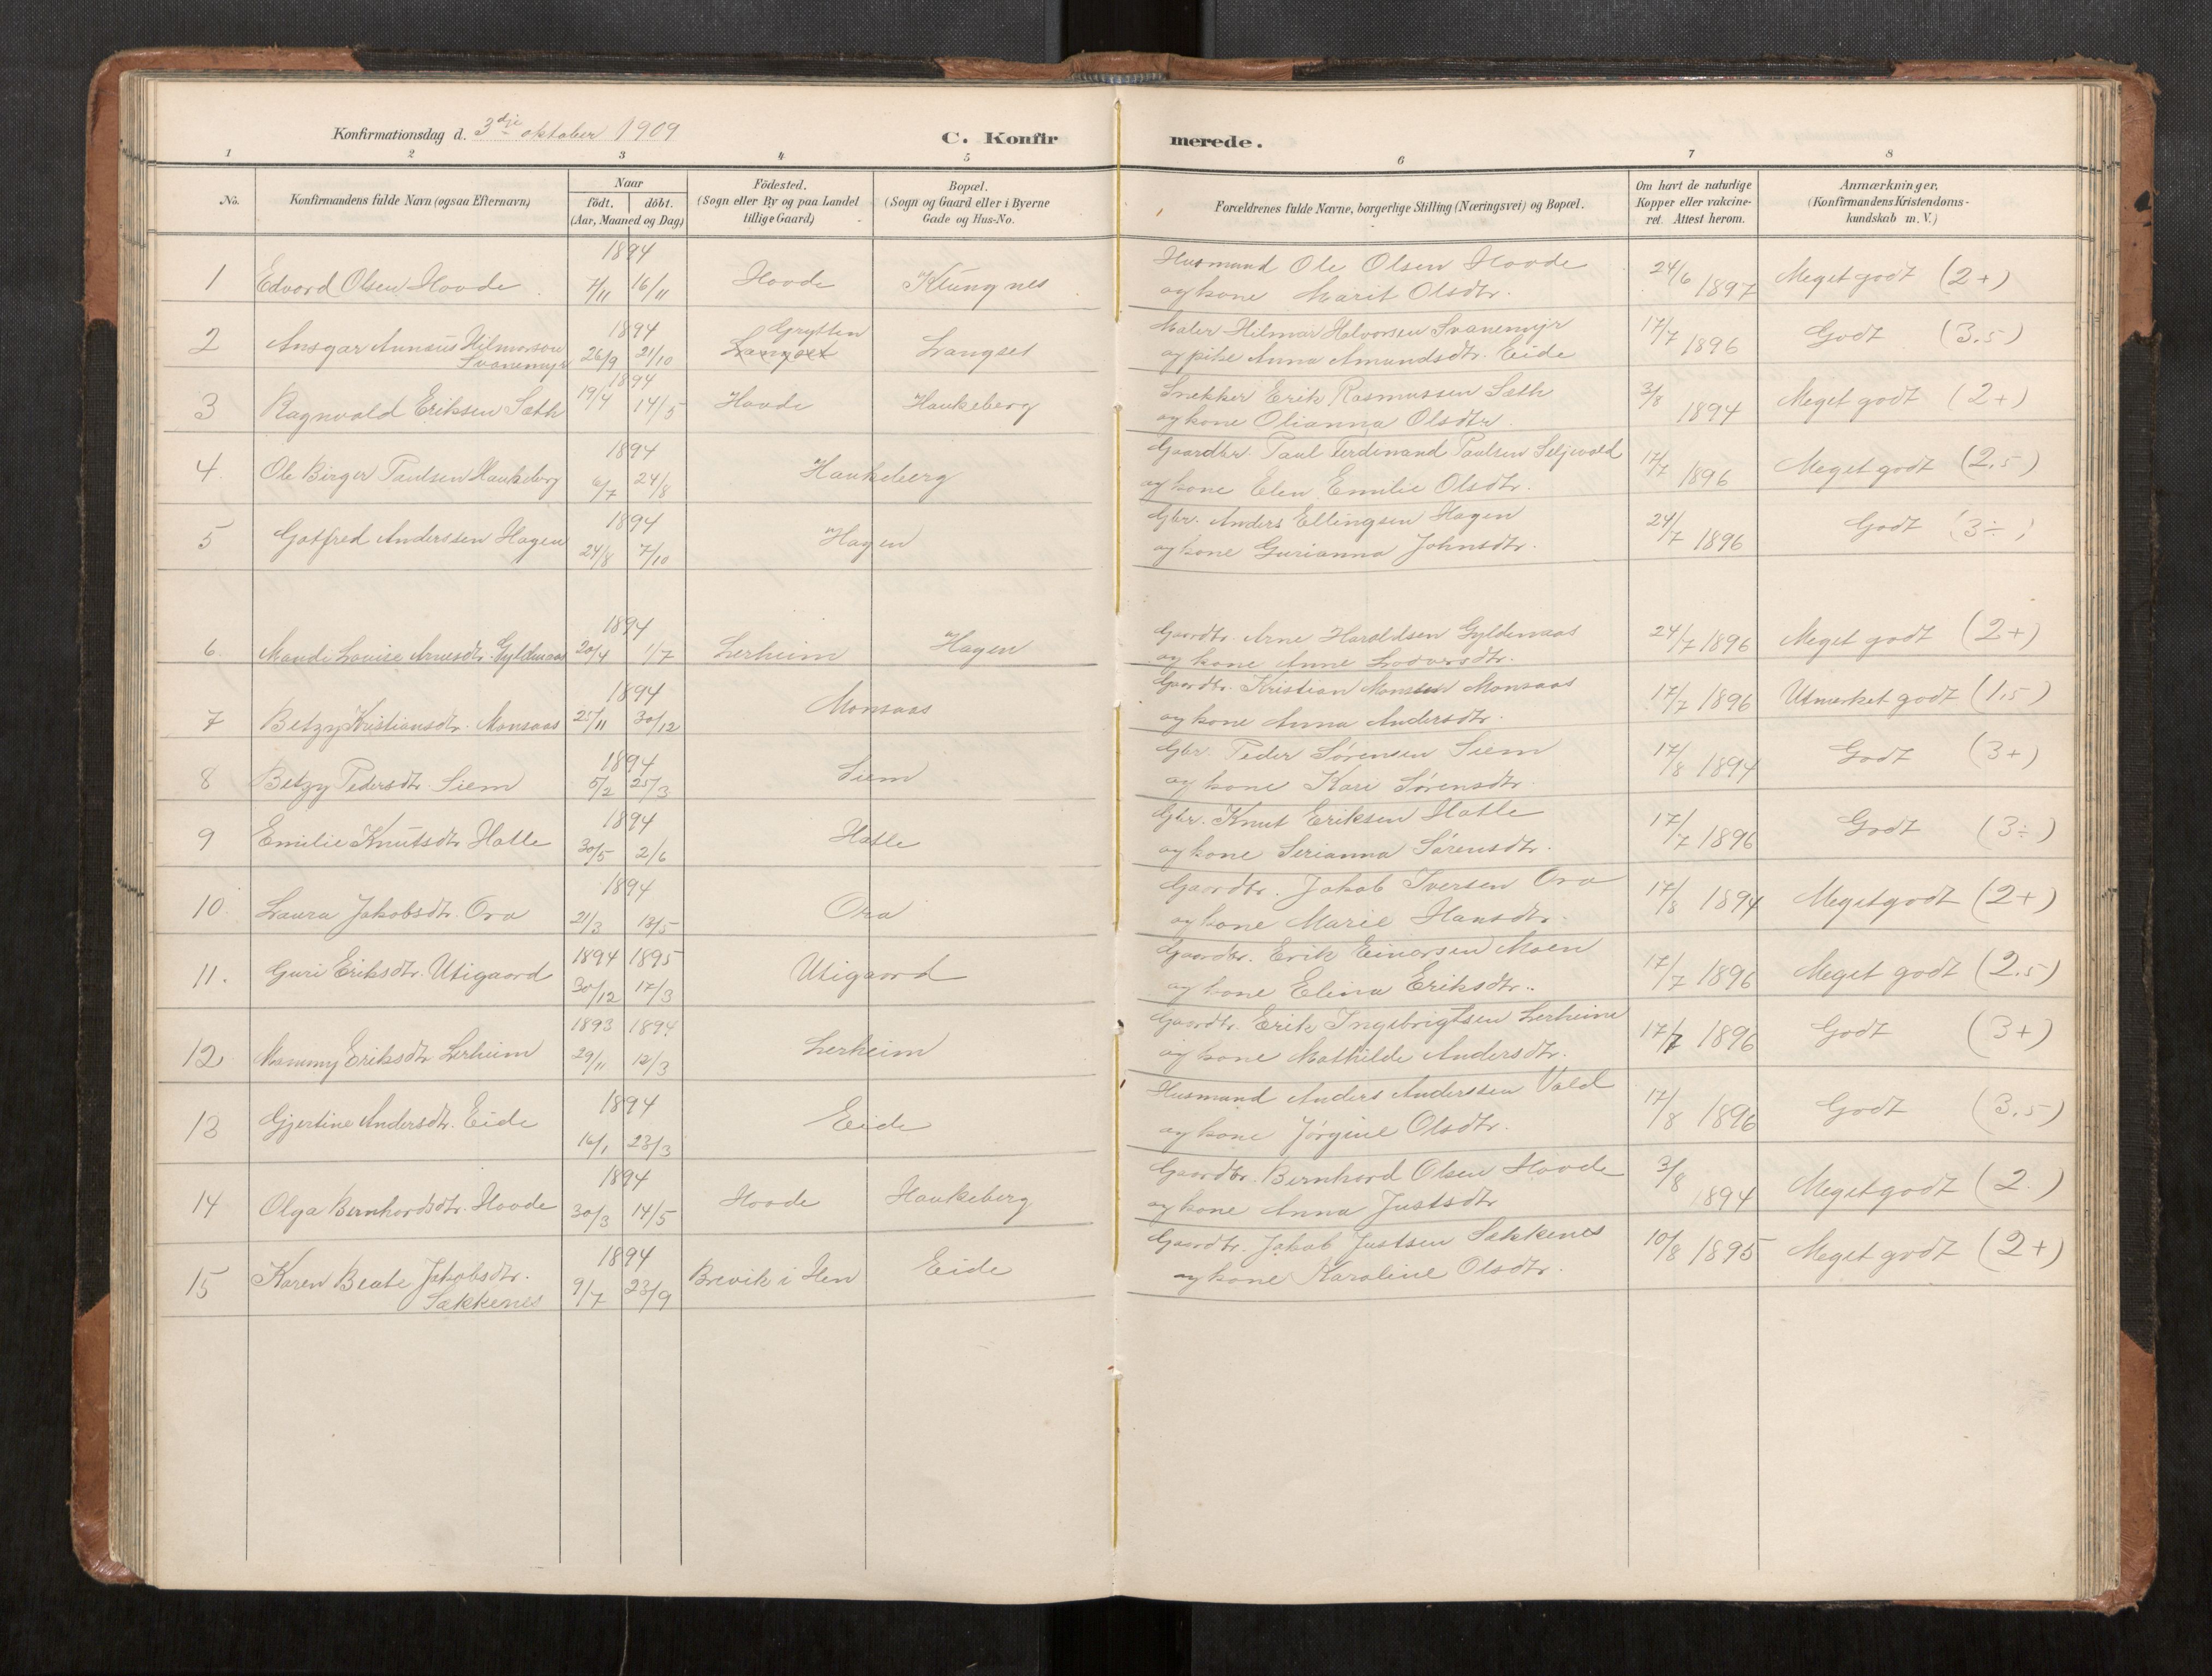 Konfirmationsdag d. 3dje oktober 1909
C. Konfirmerede.
1 2 3 4 5 6 7 8
No.
Konfirmandens fulde Navn (ogsaa Efternavn)
Naar
födt. döbt.
(Aar, Maaned og Dag)
Födested.
(Sogn eller By og paa Landet
tillige Gaard)
Bopæl.
(Sogn og Gaard eller i Byerne
Gade og Hus-No.
Forældrenes fulde Navne, borgerlige Stilling (Næringsvei) og Bopæl.
Om havt de naturlige
Kopper eller vakcine-
ret. Attest herom.
Anmærkninger.
(Konfirmandens Kristendoms-
kundskab m. V.)
1894
1 Edvard Olsen Hovde 7/11 16/11 Hovde Klungnes
Husmand Ole Olsen Hovde
og kone Marit Olsdtr. 24/6 1897 Meget godt (2+)
1894
2 Ansgar Annæus Hilmarsen Svanemyr 26/9 21/10 Langset Grytten Langset
Maler Hilmar Halvorsen Svanemyr
og pike Anna Amundsdtr. Eide 17/7 1896 Godt (3.5)
1894
3 Ragnvald Eriksen Sæth 19/4 14/5 Hovde Haukeberg
Snekker Erik Rasmussen Sæth
og kone Olianna Olsdtr. 3/8 1894 Meget godt (2+)
1894
4. Ole Birger Paulsen Haukeberg 6/7 24/8 Haukeberg
Gaardbr. Paul Ferdinand Paulsen Seljevold
og kone Elen Emilie Olsdtr. 17/7 1896 Meget godt (2,5)
1894
5 Gotfred Anderssen Hagen 24/8 7/10 Hagen
Gbr. Anders Ellingsen Hagen
og kone Gurianna Johnsdtr. 24/7 1896 Godt (3÷)
1894
6. Mandi Louise Arnesdtr. Gyldenaas 20/4 1/7 Lerheim Hagen
Gaardbr. Arne Haraldsen Gyldenaas
og kone Anne Lodversdtr. 24/7 1896 Meget godt (2+)
1894
7 Betzy Kristiansdtr. Monsaas 25/11 30/12 Monsaas
Gaardbr. Kristian Monsen Monsaas
og kone Anna Andersdtr. 17/7 1896 Utmerket godt (1,5)
1894
8 Betzy Pedersdtr. Siem 5/2 25/3 Siem
Gbr. Peder Sørensen Siem
og kone Kari Sørensdtr. 17/8 1894 Godt (3+)
1894
9 Emilie Knutsdtr. Hatle 30/5 2/6 Hatle
Gbr. Knut Eriksen Hatle
og kone Serianna Sørensdtr. 17/7 1896 Godt (3÷)
1894
10. Laura Jakobsdtr. Ora 21/3 13/5 Ora
Gaardbr. Jakob Iversen Ora
og kone Marie Hansdtr. 17/8 1894 Meget godt (2+)
1894 1895
11. Guri Eriksdtr. Utigaard 30/12 17/3 Utigaard
Gaardbr. Erik Einarsen Moen
og kone Elina Eriksdtr. 17/7 1896 Meget godt (2.5)
1893 1894
12 Mammy Eriksdtr. Lerheim 29/11 12/3 Lerheim
Gaardbr. Erik Ingebrigtsen Lerheim
og kone Mathilde Andersdtr. 17/7 1896 Godt (3+)
1894
13 Gjertine Andersdtr. Eide 16/1 23/3 Eide
Husmand Anders Anderssen Vold
og kone Jørgine Olsdtr. 17/8 1896 Godt (3.5)
1894
14 Olga Bernhardsdtr. Hovde 30/3 14/5 Hovde Haukeberg
Gaardbr. Bernhard Olsen Hovde
og kone Anna Justsdtr 3/8 1894 Meget godt (2.)
1894
15 Karen Beate Jakobsdtr. Sækkenes 9/7 23/9 Brevik i Hen Eide
Gaardbr. Jakob Justsen Sækkenes
og kone Karoline Olsdtr. 10/8 1895 Meget godt (2+)